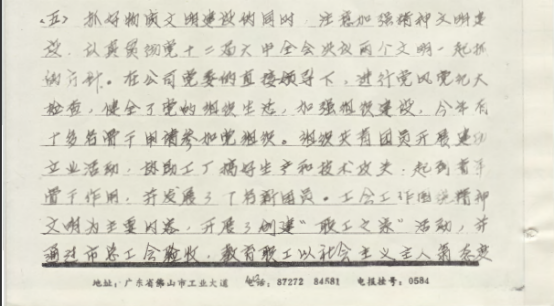 (五) 抓好物质文明建设的同时,注意加强精神文明建
设,认真贯彻党十二届六中全会决议两个文明一起抓
的方针。在公司党委的直接领导下,进行党风党纪大
检查,健全了党的组织生活,加强组织建设,今年有
十多名骨干申请参加党组织。组织共青团员开展建功
立业活动,协助工厂搞好生产和技术攻关,起到青年
骨干作用,并发展了 名新团员。工会工作围绕精神
文明为主要内容,开展了创建“职工之家”活动,并
通过市总工会验收,教育职工以社会主义主人翁态度
地址:广东省佛山市工业大道 电话:87272 84581 电报挂号:0584